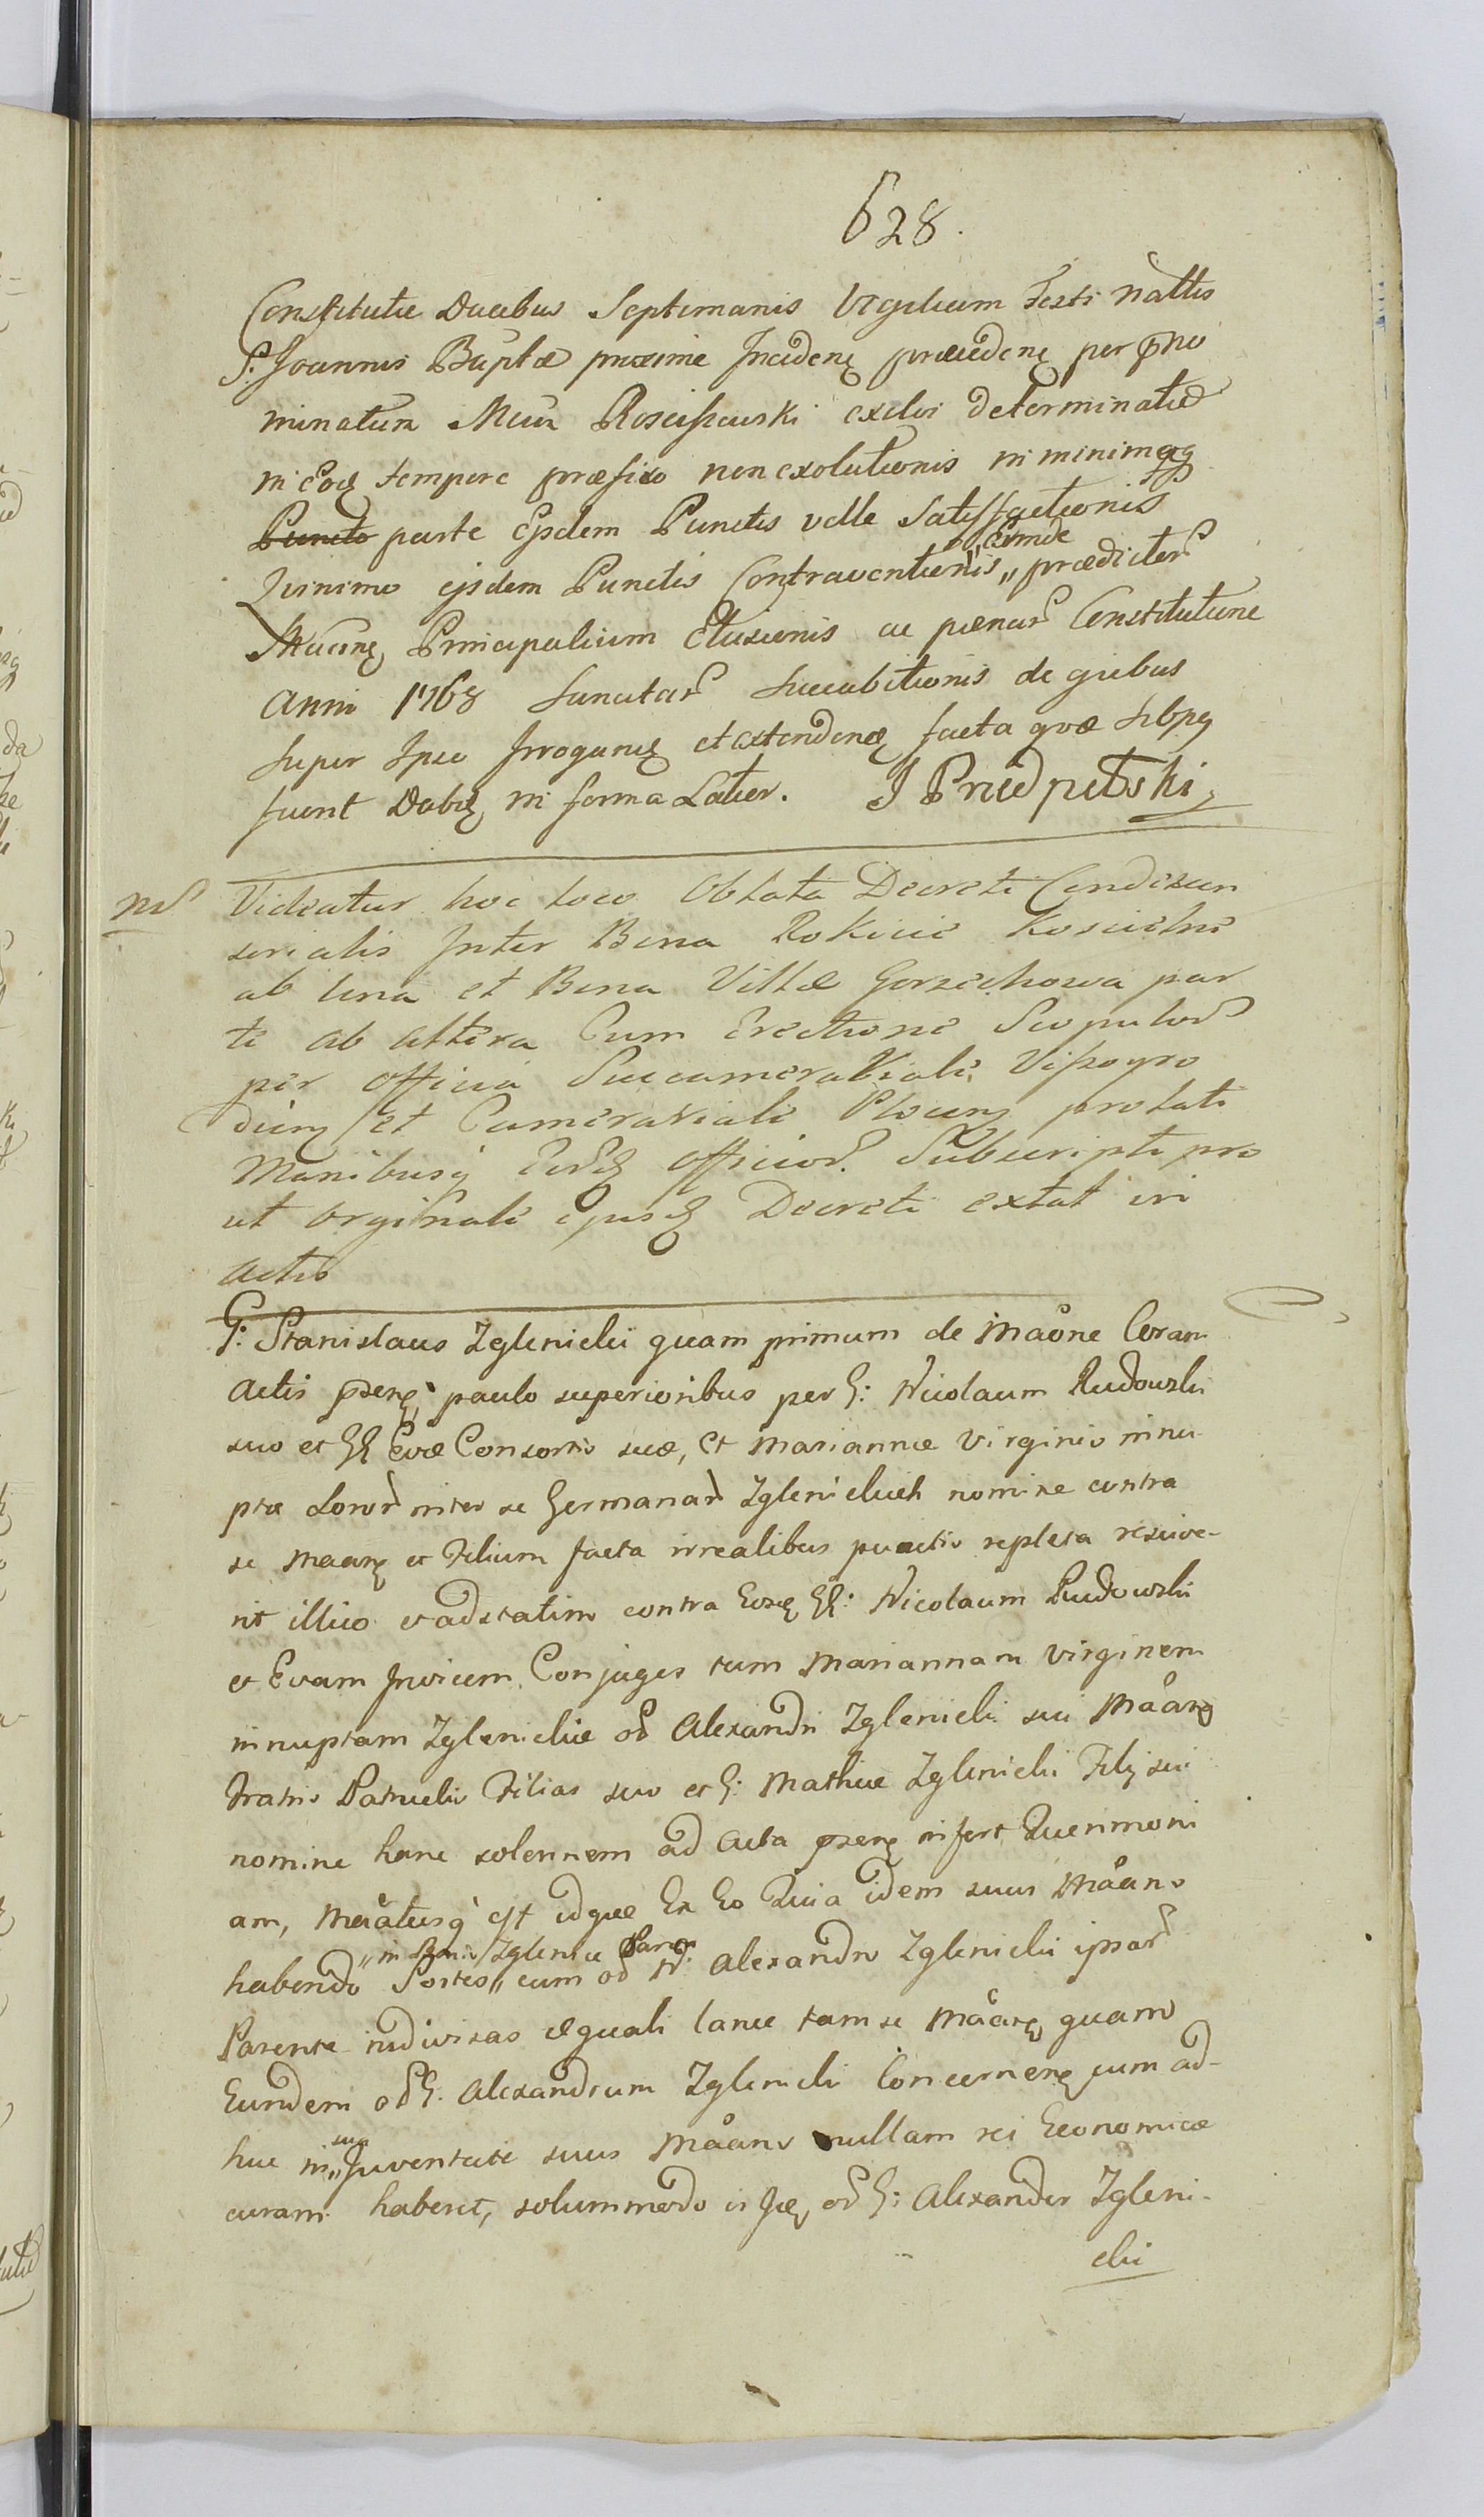 628.
Constitutæ Duabus Septimanis Vigilium Festi nattis
S. Joannis Baptæ proxime Incidenę præcedenę per ꝓno
minatum Mcum Rosciszewski exolvi determinatæ
in Eoq tempore præfixo non exolutionis in minimoqg
Puncto parte Ejsdem Punctis velle Satisfactionis
Quinimo ejsdem Punctis Contraventionis „ prædictor
Eximde
Principalium Elusionis ac pænar Constitutione
Anni 1768 Sancitar Succubitionis de quibus
super Ipso Irroganę et extendenę facta quæ
fuerit Dabę in forma Latior. J Prredpełski
Nd Videatur hoc loco Oblata Decreti Condescen
serialis Inter Bona Rokicie Koscielne
ab una et Bona Villæ Gorzechowa par
te ab altera Cum Erectione Scopulor
per Officia Succamerariale Viszogro
dien et Camerariale Plocen prolati
Manibusq Officior. Subscripti pro
ut originale ejusd Decreti extat in
Actis
G: Stanislaus Zglenicki quam primum de Maone Coram
Actis psenę paulo superioribus per G: Nicolaum Rudowski
suo et GG Evæ Consortis suæ, et Mariannæ Virginis innu
ptæ Soror inter se Germanar Zglenickich nomine contra
se Maarę et Filium facta irrealibus punctis repleta rescive-
rit illico et adstatim contra Eosdę GG: Nicolaum Rudowski
et Evam Invicem Conjuges tum Mariannam Virginem
innuptam Zglenickie od Alexandri Zglenicki sui Maarę
Fratris Patruelis Filias suo et G: Mathiæ Zglenicki Filij sui
nomine hanc solennem ad Acta psenę infert Querimoni
am, Maatusq est idque Ex Eo Quia idem suus Maans
„ in Bonis Zglenice
habendo Sortes „ cum od N. Alexandro Zglenicki ipsar
Parente indivisas æquali lance tam se Maarę quam
Eundem od G. Alexandrum Zglenicki Concernenę cum ad-
sua
huc in „ Juventute suus Maans nullam rei Economicæ
curam haberet, solummodo is Ję od G: Alexander Zgleni-
cki